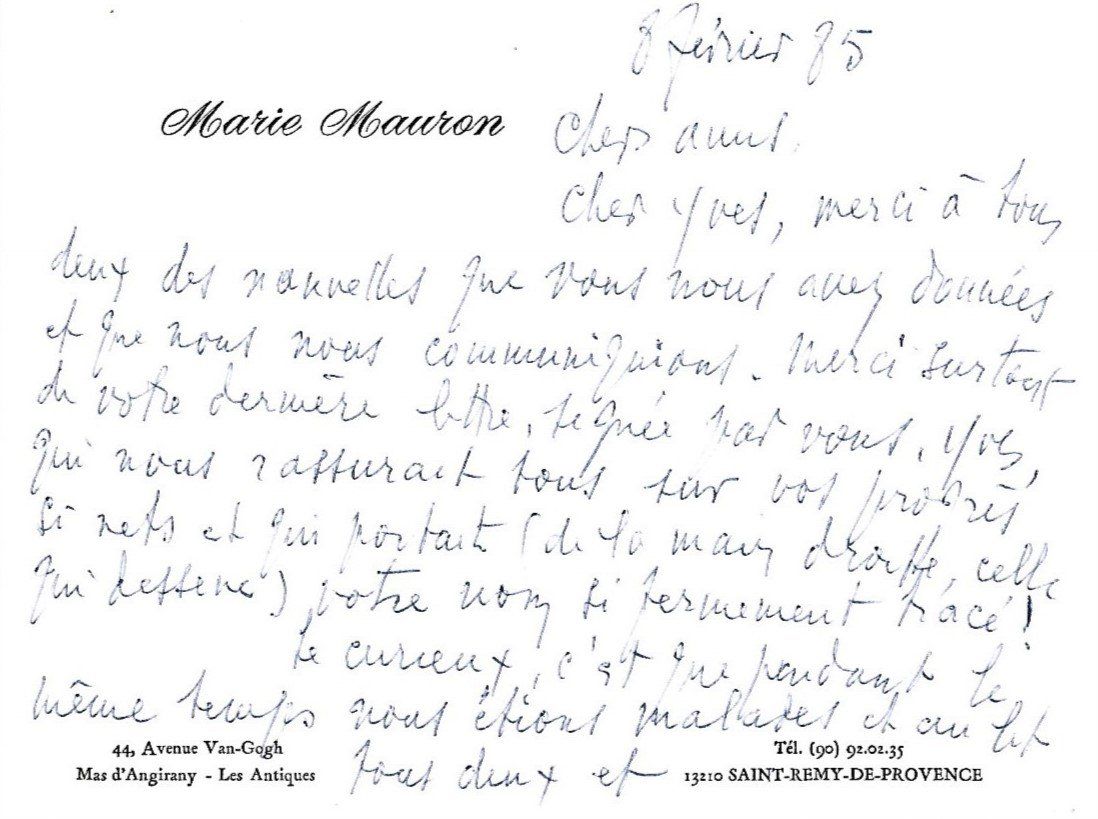 8 février 85
Marie Mauron
Chers amis.
Cher Yves, merci à tous
deux des nouvelles que vous nous avez données
et que nous nous communiquions. Merci surtout
de votre dernière lettre, signée par vous, Yves,
qui nous rassurait tous sur vos progrès
si nets et qui portait (de la main droite, celle
qui dessine) votre nom si fermement tracé !
Le curieux, c'est que pendant le
même temps nous étions malades et au lit
tous deux et
44, Avenue Van-Gogh
Mas d'Angirany - Les Antiques
Tél. (90) 92.02.35
13210 SAINT-REMY-DE-PROVENCE